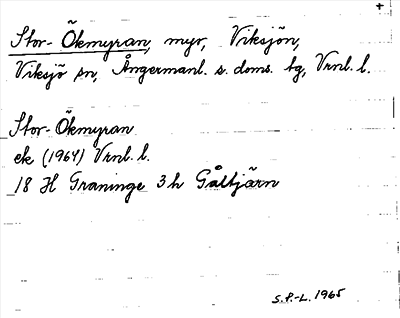 +
Stor-Ökmyran, myr, Viksjön,
Viksjö sn, Ångermanl. s. doms. tg, Vrnl. l.
Stor-Ökmyran
ek (1964) Vrnl. l.
18 H Graninge 3h Gåltjärn
S.P.-L. 1965